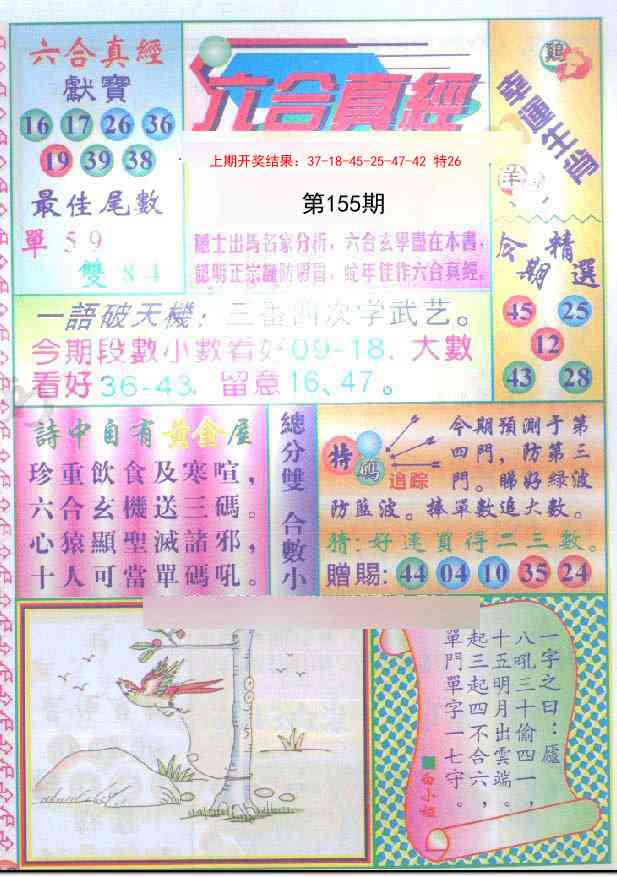 六合真經
獻寶
16 17 26 36
19 39 38
最佳尾數
單 59
雙 84
六合真經
上期开奖结果：37-18-45-25-47-42 特26
第155期
隱士出馬名家分析，六合玄學盡在本書，
認明正宗謹防假冒，蛇年佳作六合真經。
鷄
幸運生肖
羊
今期
精選
45 25
12
43 28
一語破天機：三番四次学武艺。
今期段數小數看好09-18、大數
看好36-43、留意16、47。
詩中自有黃金屋
珍重飲食及寒喧，
六合玄機送三碼。
心猿顯聖滅諸邪，
十人可當單碼吼。
總分雙 合數小
特碼
追踪
今期預測于第
四門，防第三
門。睇好綠波
防藍波。捧單數追大數。
猜：好運買得二三數。
贈賜：44 04 10 35 24
一字之曰：廬
八吼三十偷四一，
十五明月出雲端，
起三起四不合六，
單門單字一七守。